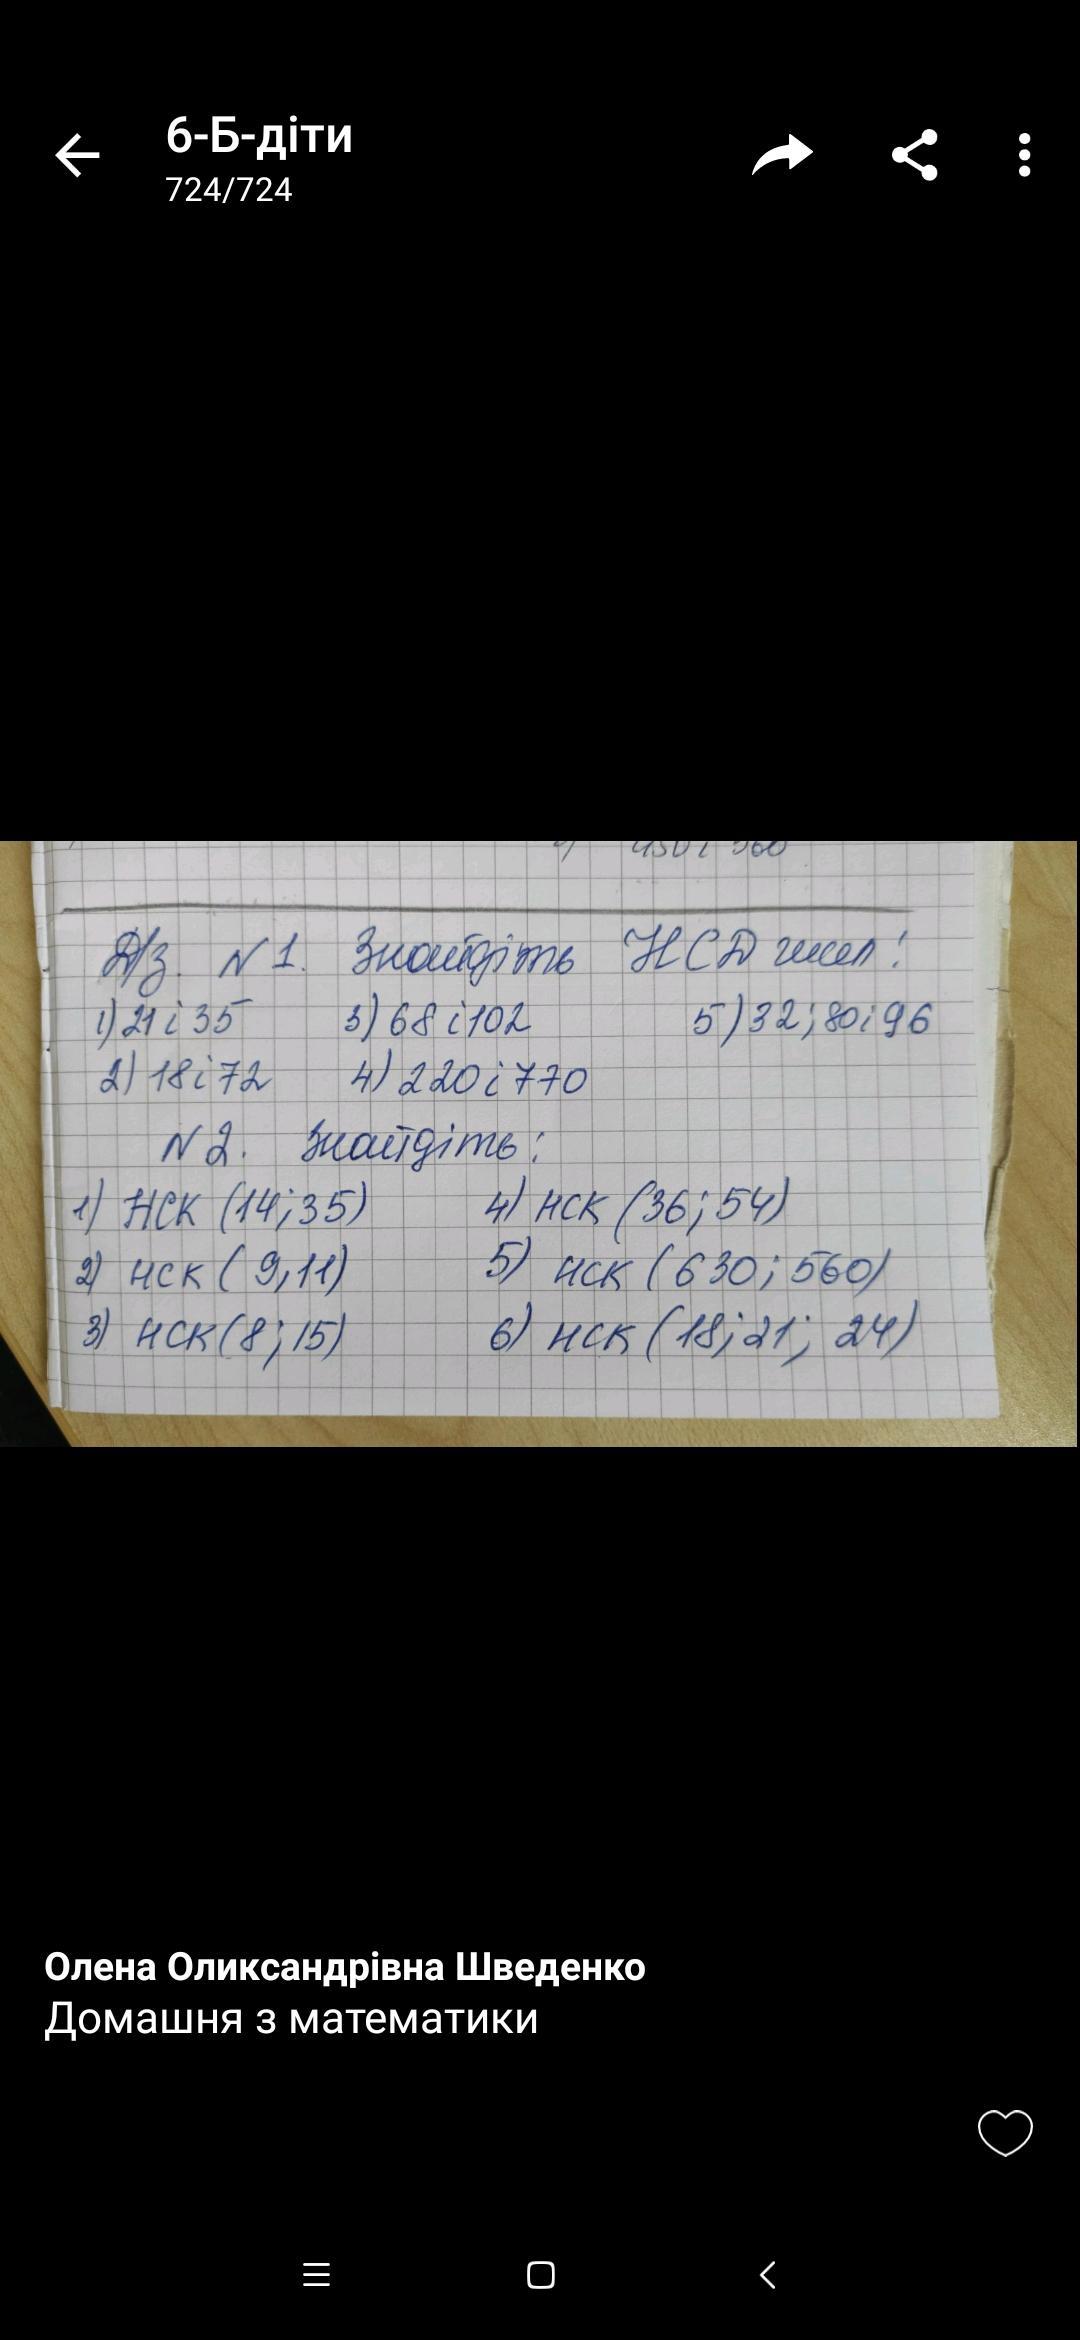 6-Б-діти
724/724
Д/з. N1. Знайдіть НСД чисел:
1) 21 і 35 3) 68 і 102 5) 32; 80 і 96
2) 18 і 72 4) 220 і 770
N2. Знайдіть:
1) НСК (14; 35) 4) НСК (36; 54)
2) НСК (9, 11) 5) НСК (630; 560)
3) НСК (8; 15) 6) НСК (18; 21; 24)
Олена Оликсандрівна Шведенко
Домашня з математики